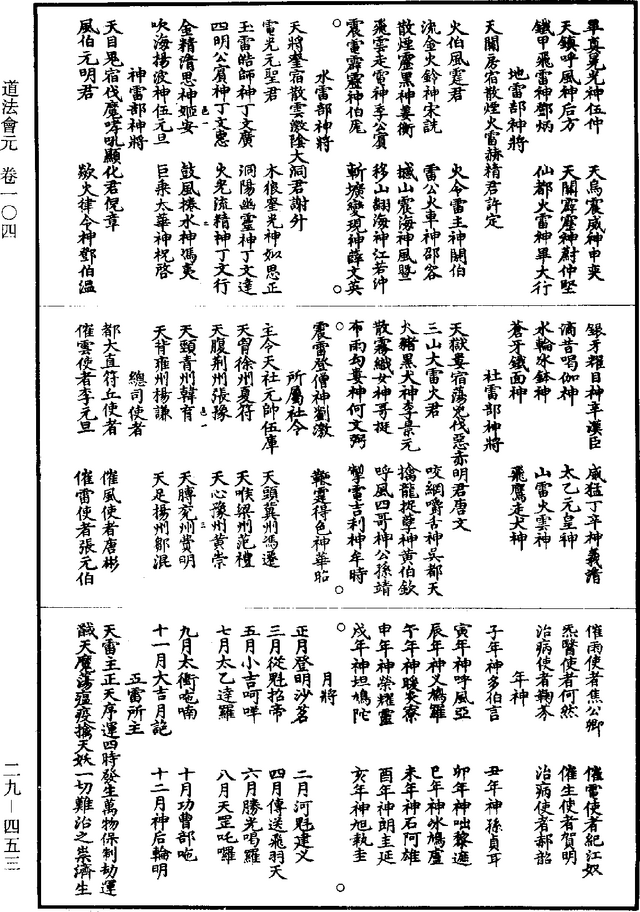 道法會元 卷一〇四
二九－四五三
畢真晃光神伍仲　天鳥震威神申奕
天鎮呼風神后方　天關霹靂神蔚仲堅
鐵甲飛雷神鄧炳　仙都火雷神畢大行
地雷部神將
天關房宿散煙火雷赫精君許定
火伯風霆君　火令雷主神閼伯
流金火鈴神宋詵　雷公火車神邵容
散煙靈黑神婁衡　撼山震海神風暨
飛雲走雷神李公賓　移山翻海神江若沖
震電霹靂神伯虎　斬壙變現神薛文英
水雷部神將
天將奎宿散雲激陰大洞君謝外
電光元聖君　木狼奎光神如思正
玉雷皓師神丁文廣　洞陽幽靈神丁文達
四明公賓神丁文惠　火光流精神丁文行
金精濟思神姬安　鼓風橈水神馮夷
吹海揚波神伍元旦　巨乘太華神祝啓
神雷部神將
天目鬼宿伐魔哮吼顯化君倪章
風伯元明君　欻火律令神鄧伯溫
銀牙耀目神辛漢臣　威猛丁辛神義濤
滴昔喝伽神　太乙元皇神
水輪冰鉢神　山雷火雲神
蒼牙鐵面神　飛鷹走犬神
社雷部神將
天獄婁宿蕩兇伐惡赤明君唐文
三山大雷火君　咬網嚼舌神吳都天
火豬黑犬神李景元　擒龍捉孽神黃伯欽
散霧織女神哥挺　呼風四哥神公孫靖
布雨勾婁神何文弼　掣電吉利神牟時
震雷登僧神劉澈　鞭霆得色神華昭
所屬社令
主令天社元帥伍庫　天頭冀州馮遷
天胃徐州夏符　天喉梁州范禮
天腹荆州張豫　天心豫州黃崇
天頸青州韓育　天膊兗州費明
天背雍州楊謙　天足揚州鄒混
總司使者
都大直符丘使者　催風使者唐彬
催雲使者李元旦　催雷使者張元伯
催雨使者焦公卿　催電使者紀江奴
炁醫使者何然　催生使者賀明
治病使者鞠芥　治病使者郝韶
年神
子年神多伯言　丑年神孫貞耳
寅年神呼風亞　卯年神咄黎遮
辰年神义鳩羅　巳年神冰鳩廬
午年神睽天寮　未年神石阿雄
申年神榮耀靈　酉年神朗主延
戌年神坦鳩陀　亥年神旭執圭
月將
正月登明沙茗　二月河魁建义
三月從魁招帝　四月傳送飛羽天
五月小吉呵咩　六月勝光喝羅
七月太乙達羅　八月天罡吒囉
九月太衝唵喃　十月功曹部唵
十一月大吉月說　十二月神后輪明
五雷所主
天雷主正天序運四時發生萬物保制劫運
馘天魔蕩瘟疫擒天妖一切難治之祟濟生